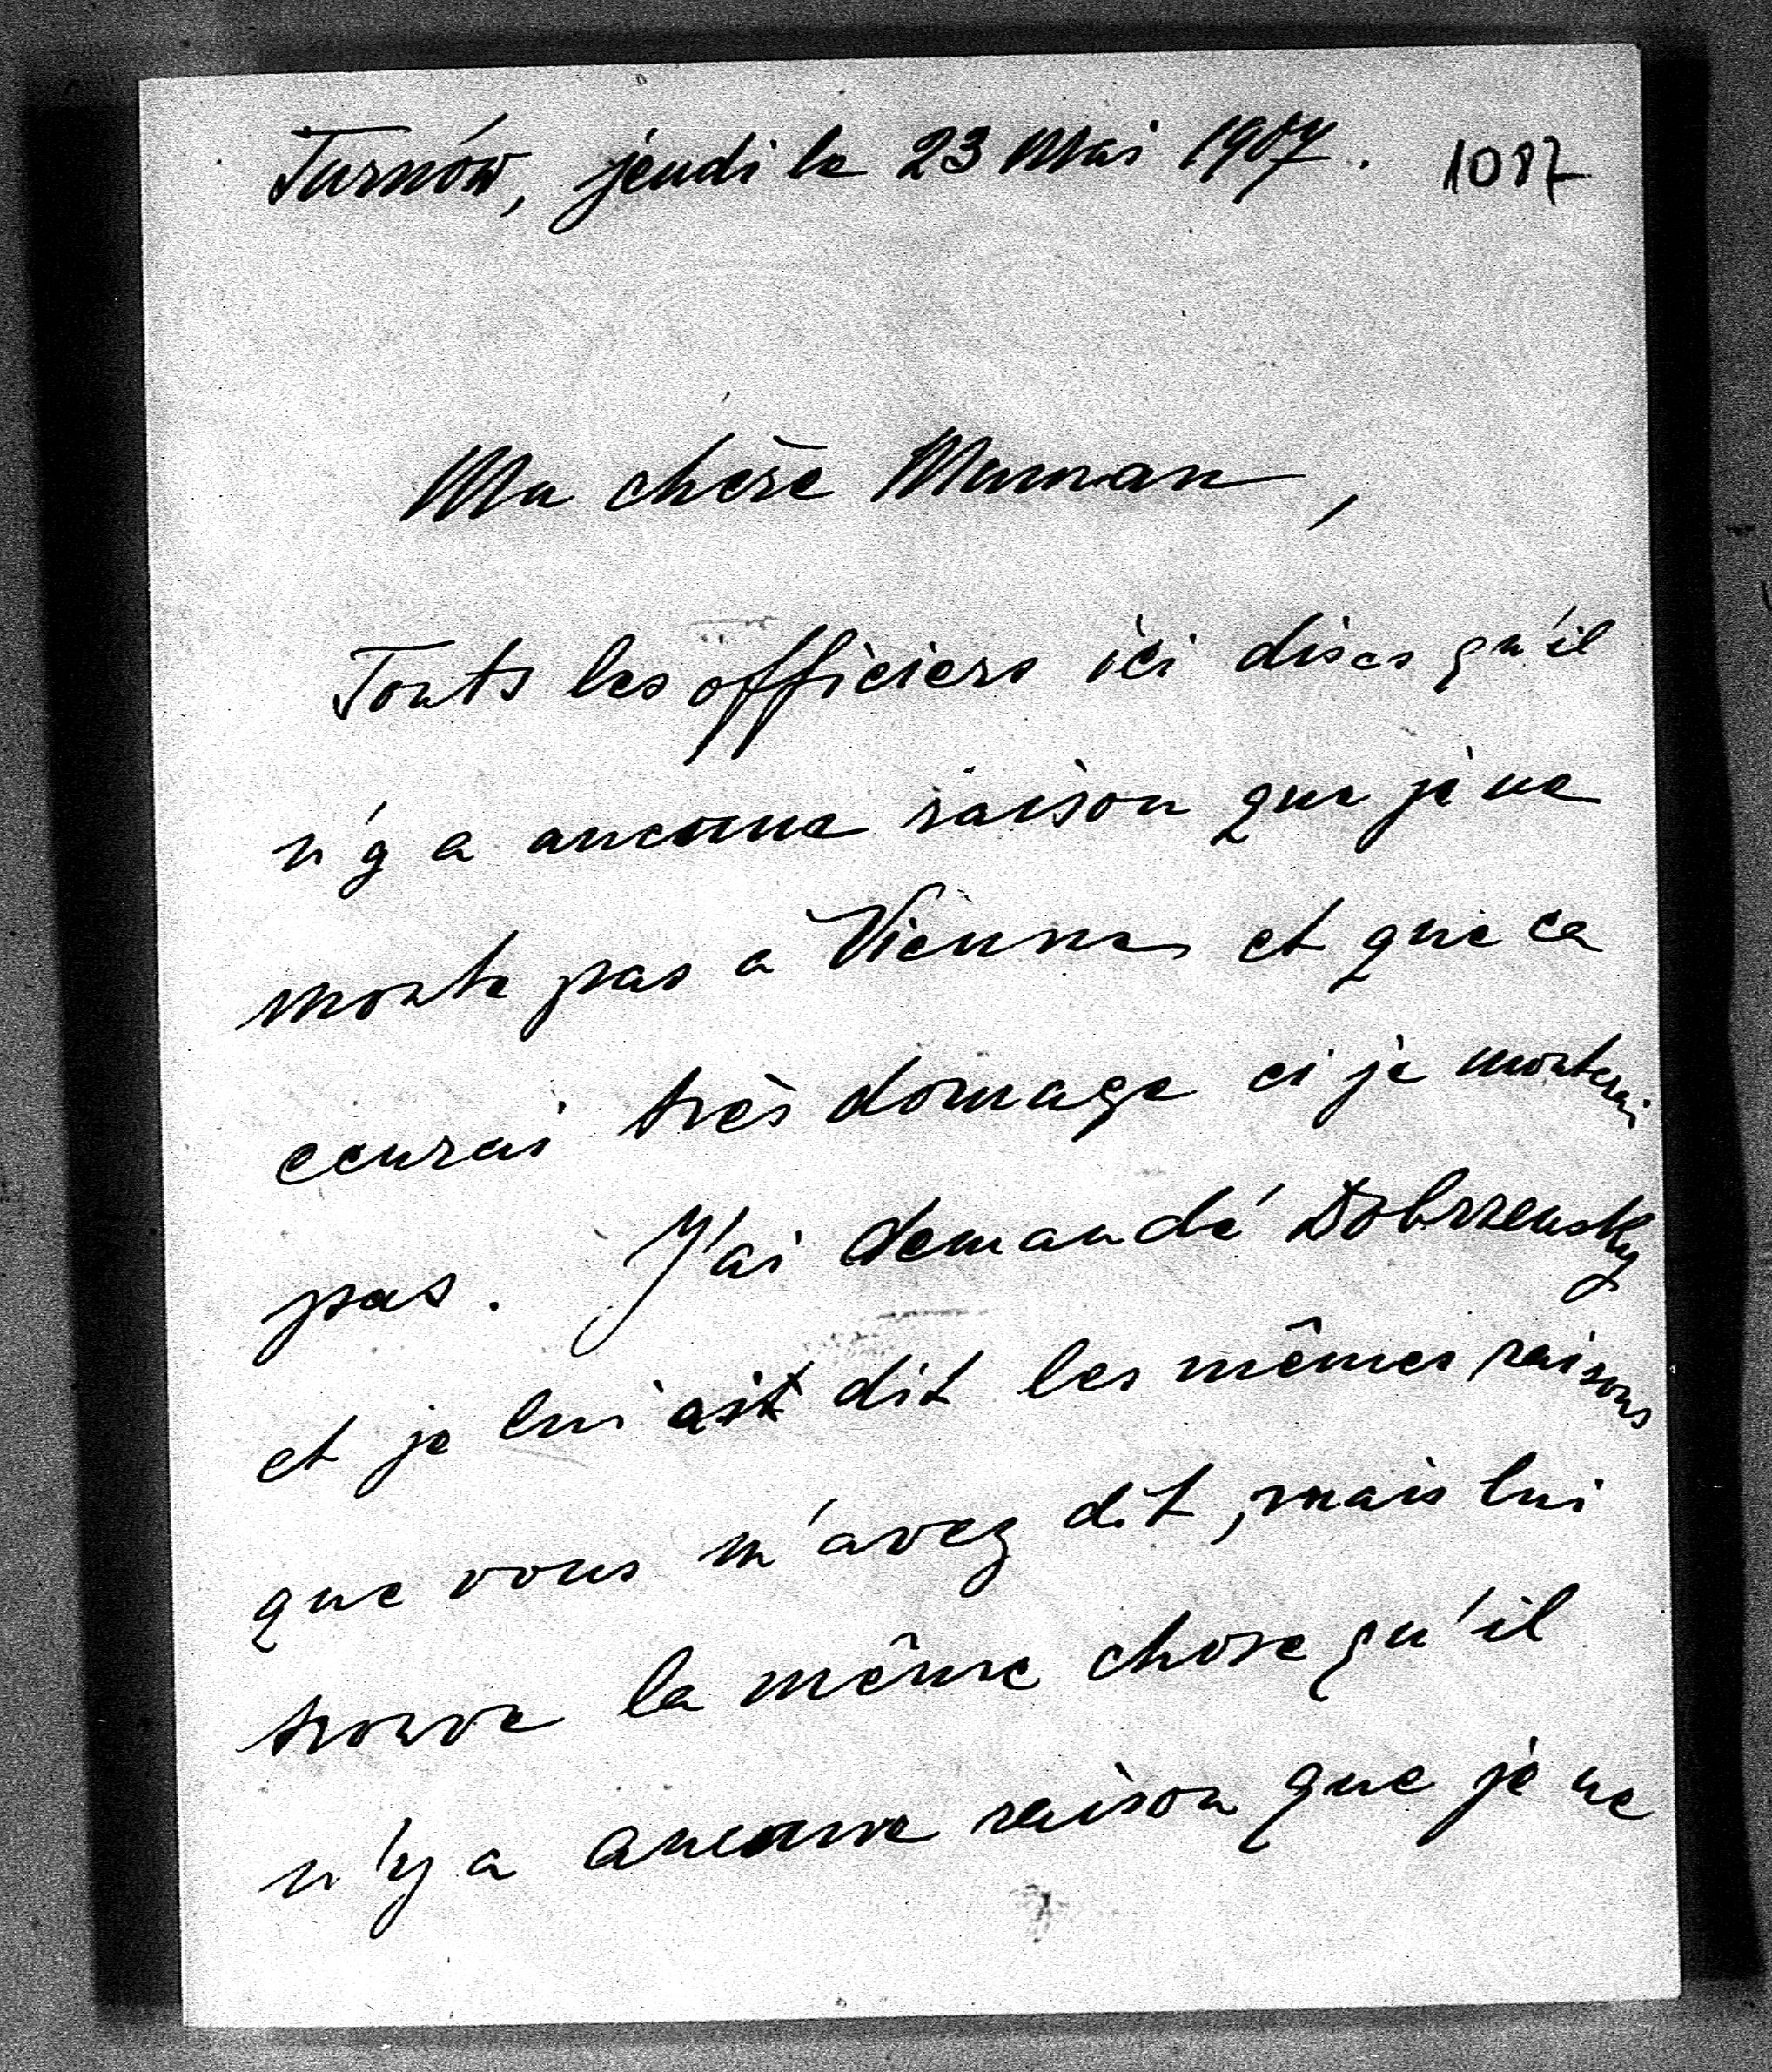 Tarnów, jeudi le 23 Mai 1907. 1087
Ma chère Maman,
Touts les officiers ici dises qu'il
n'y a aucoune raison que je ne
monte pas a Vienne, et que ca
ceurai très domage ci je monterai
pas. J'ai demandé Dobrzensky
et je lui ait dit les mêmes raisons
que vous m'avez dit, mais lui
trouve la même chose qu'il
n'y a aucoune raison que je ne